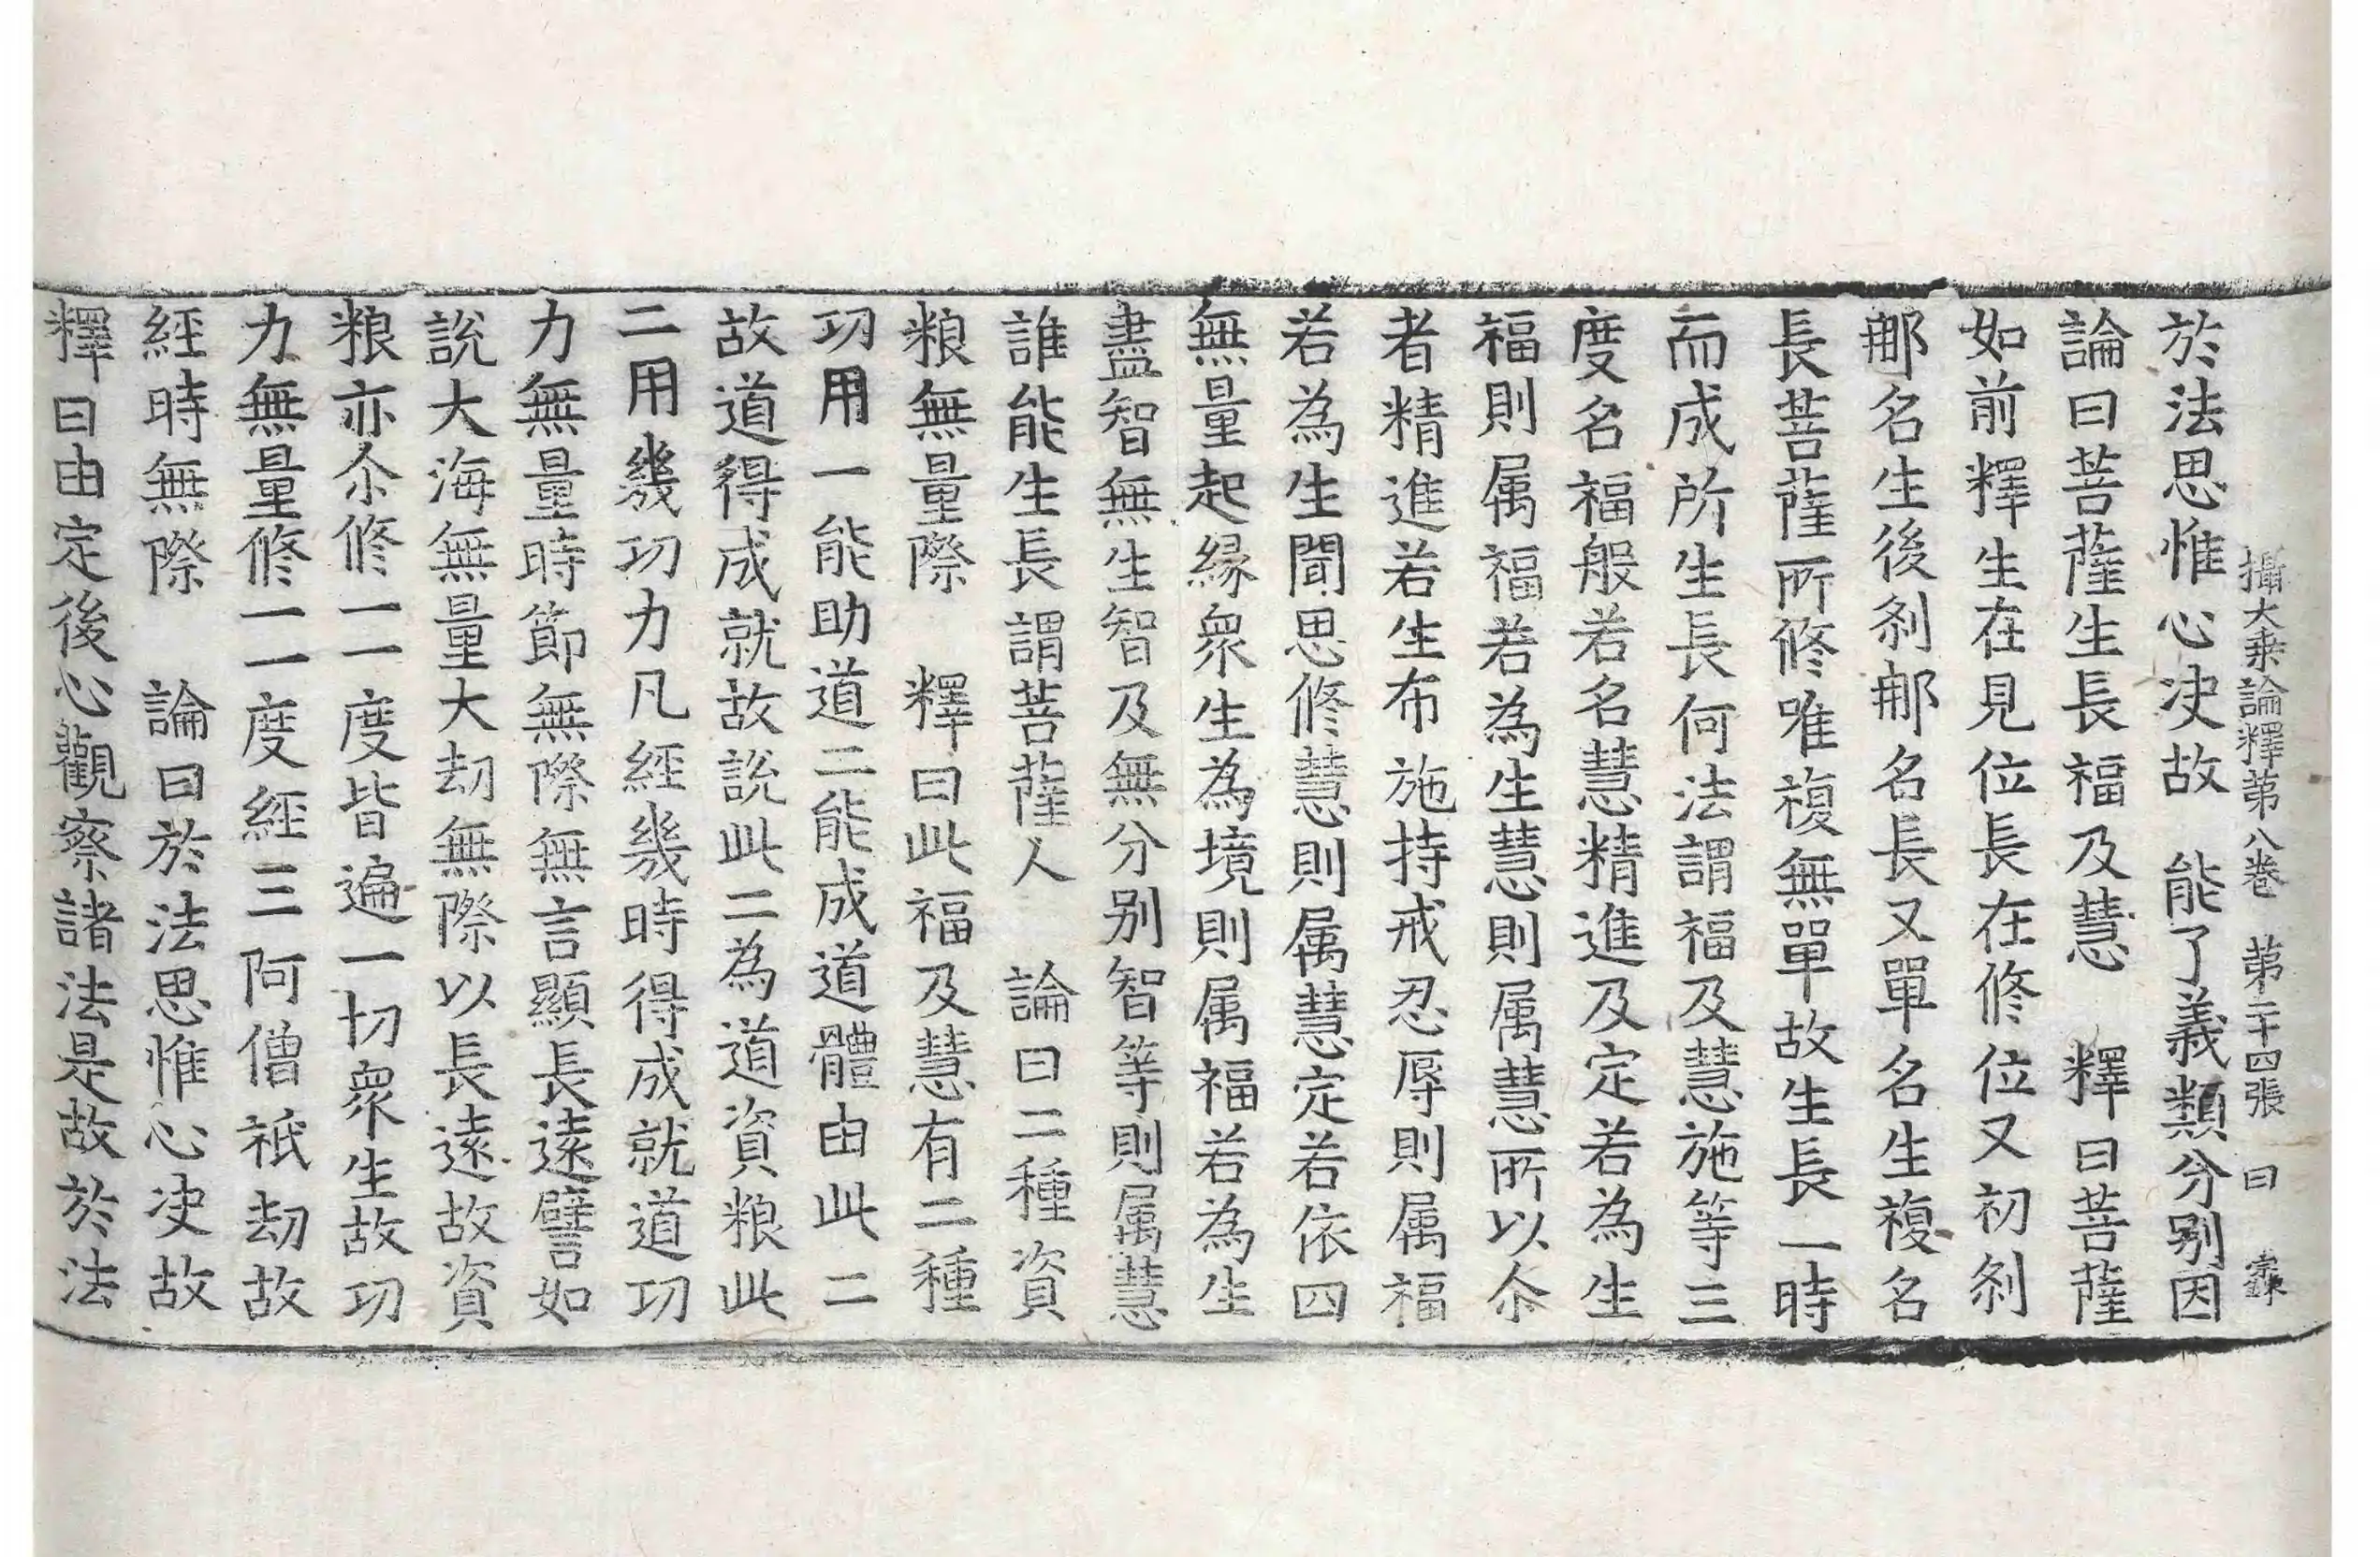 攝大乘論釋第八卷 第二十四張 曰
於法思惟心决故 能了義類分别因
論曰菩薩生長福及慧 釋曰菩薩
如前釋生在見位長在修位又初刹
那名生後刹那名長又單名生複名
長菩薩所修唯複無單故生長一時
而成所生長何法謂福及慧施等三
度名福般若名慧精進及定若為生
福則属福若為生慧則属慧所以尒
者精進若生布施持戒忍辱則属福
若為生聞思修慧則属慧定若依四
無量起緣衆生為境則属福若為生
盡智無生智及無分别智等則属慧
誰能生長謂菩薩人 論曰二種資
粮無量際 釋曰此福及慧有二種
功用一能助道二能成道體由此二
故道得成就故說此二為道資粮此
二用幾功力凡經幾時得成就道功
力無量時節無際無言顯長遠譬如
說大海無量大劫無際以長遠故資
粮亦尒修一一度皆遍一切衆生故功
力無量修一一度經三阿僧祇劫故
經時無際 論曰於法思惟心决故
釋曰由定後心觀察諸法是故於法